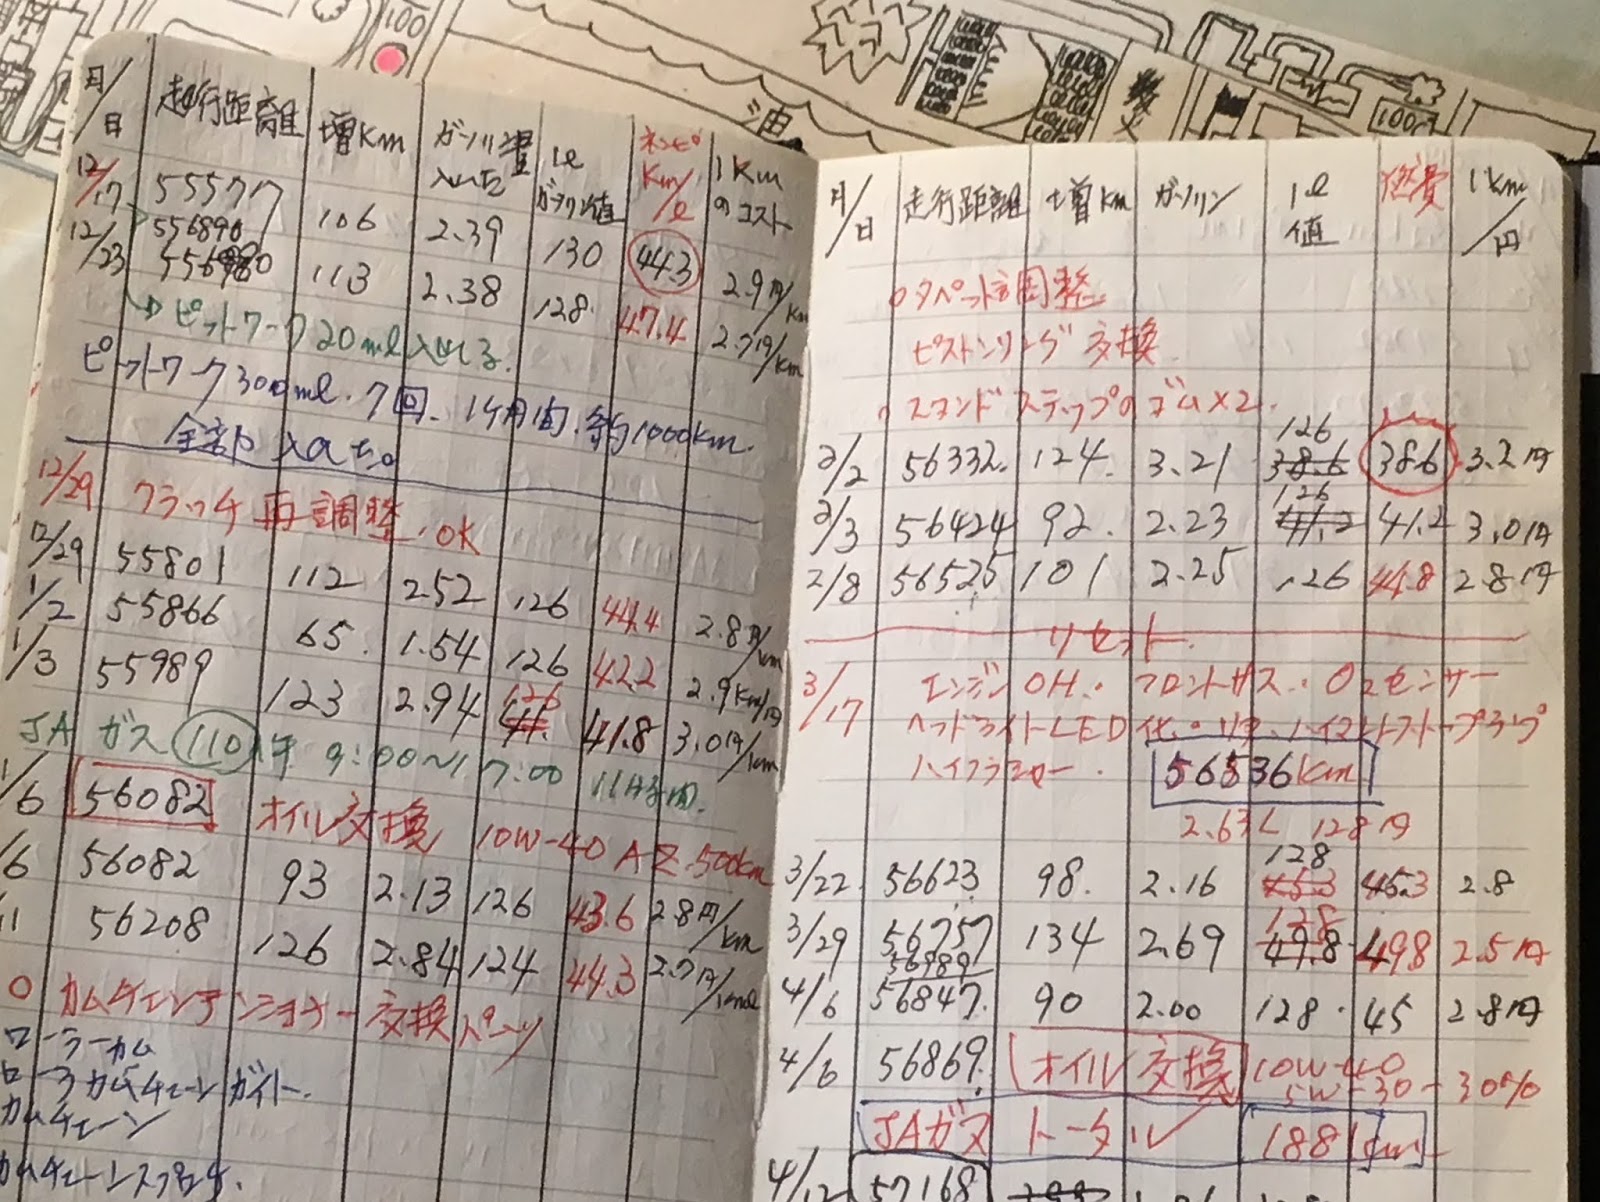 100
油
100
月/日 走行距離 増Km ガソリン量 入れた 1ℓ ガソリン値 ネンピ Km/ℓ 1Km のコスト
12/17 55577 106 2.39 130 44.3 2.9円/Km
12/23 113 2.38 128 47.4 2.7円/Km
→ピットワーク20ml入れる.
ピットワーク300ml.7回.1ケ月間.約1000Km.
全部入った。
12/29 クラッチ再調整.OK
12/29 55801 112 2.52 126 44.4 2.8円/km
1/2 55866 65. 1.54 126 42.2 2.9Km/円
1/3 55989 123 2.94 126 41.8 3.0円/km
JA ガス 110 9:00〜17:00
1/6 56082 オイル交換 10W-40 AZ.500km
/6 56082 93 2.13 126 43.6 2.8円/km
11 56208 126 2.84 124 44.3 2.7円/
カムチェンテンショナー交換パーツ
ローラーカム
カムチェーンガイド.
カムチェーン
カムチェーンスプロケ.
月/日 走行距離 増Km ガソリン 1ℓ値 燃費 1Km/円
○タペット調整
ピストンリング交換.
○スタンドステップのゴム×2.
2/2 56332. 124. 3.21 126 38.6 38.6 3.2円
2/3 56424 92. 2.23 126 41.2 41.2 3.0円
2/8 56525 101 2.25 126 44.8 2.8円
リセット.
3/17 エンジンOH.・フロントサス.・O2センサー
ヘッドライトLED化.・リヤ.ハイマウントストップランプ
ハイフラシャー. 56536Km
2.63L 128円
3/22 56623 98. 2.16 128 45.3 45.3 2.8
3/29 56757 134 2.69 128 49.8 49.8 2.5円
56989
4/6 56847. 90 2.00 128. 45 2.8円
4/6 56869. オイル交換 10W-40
5W-30-30%
JAガス トータル 1881Km
4/12 57168